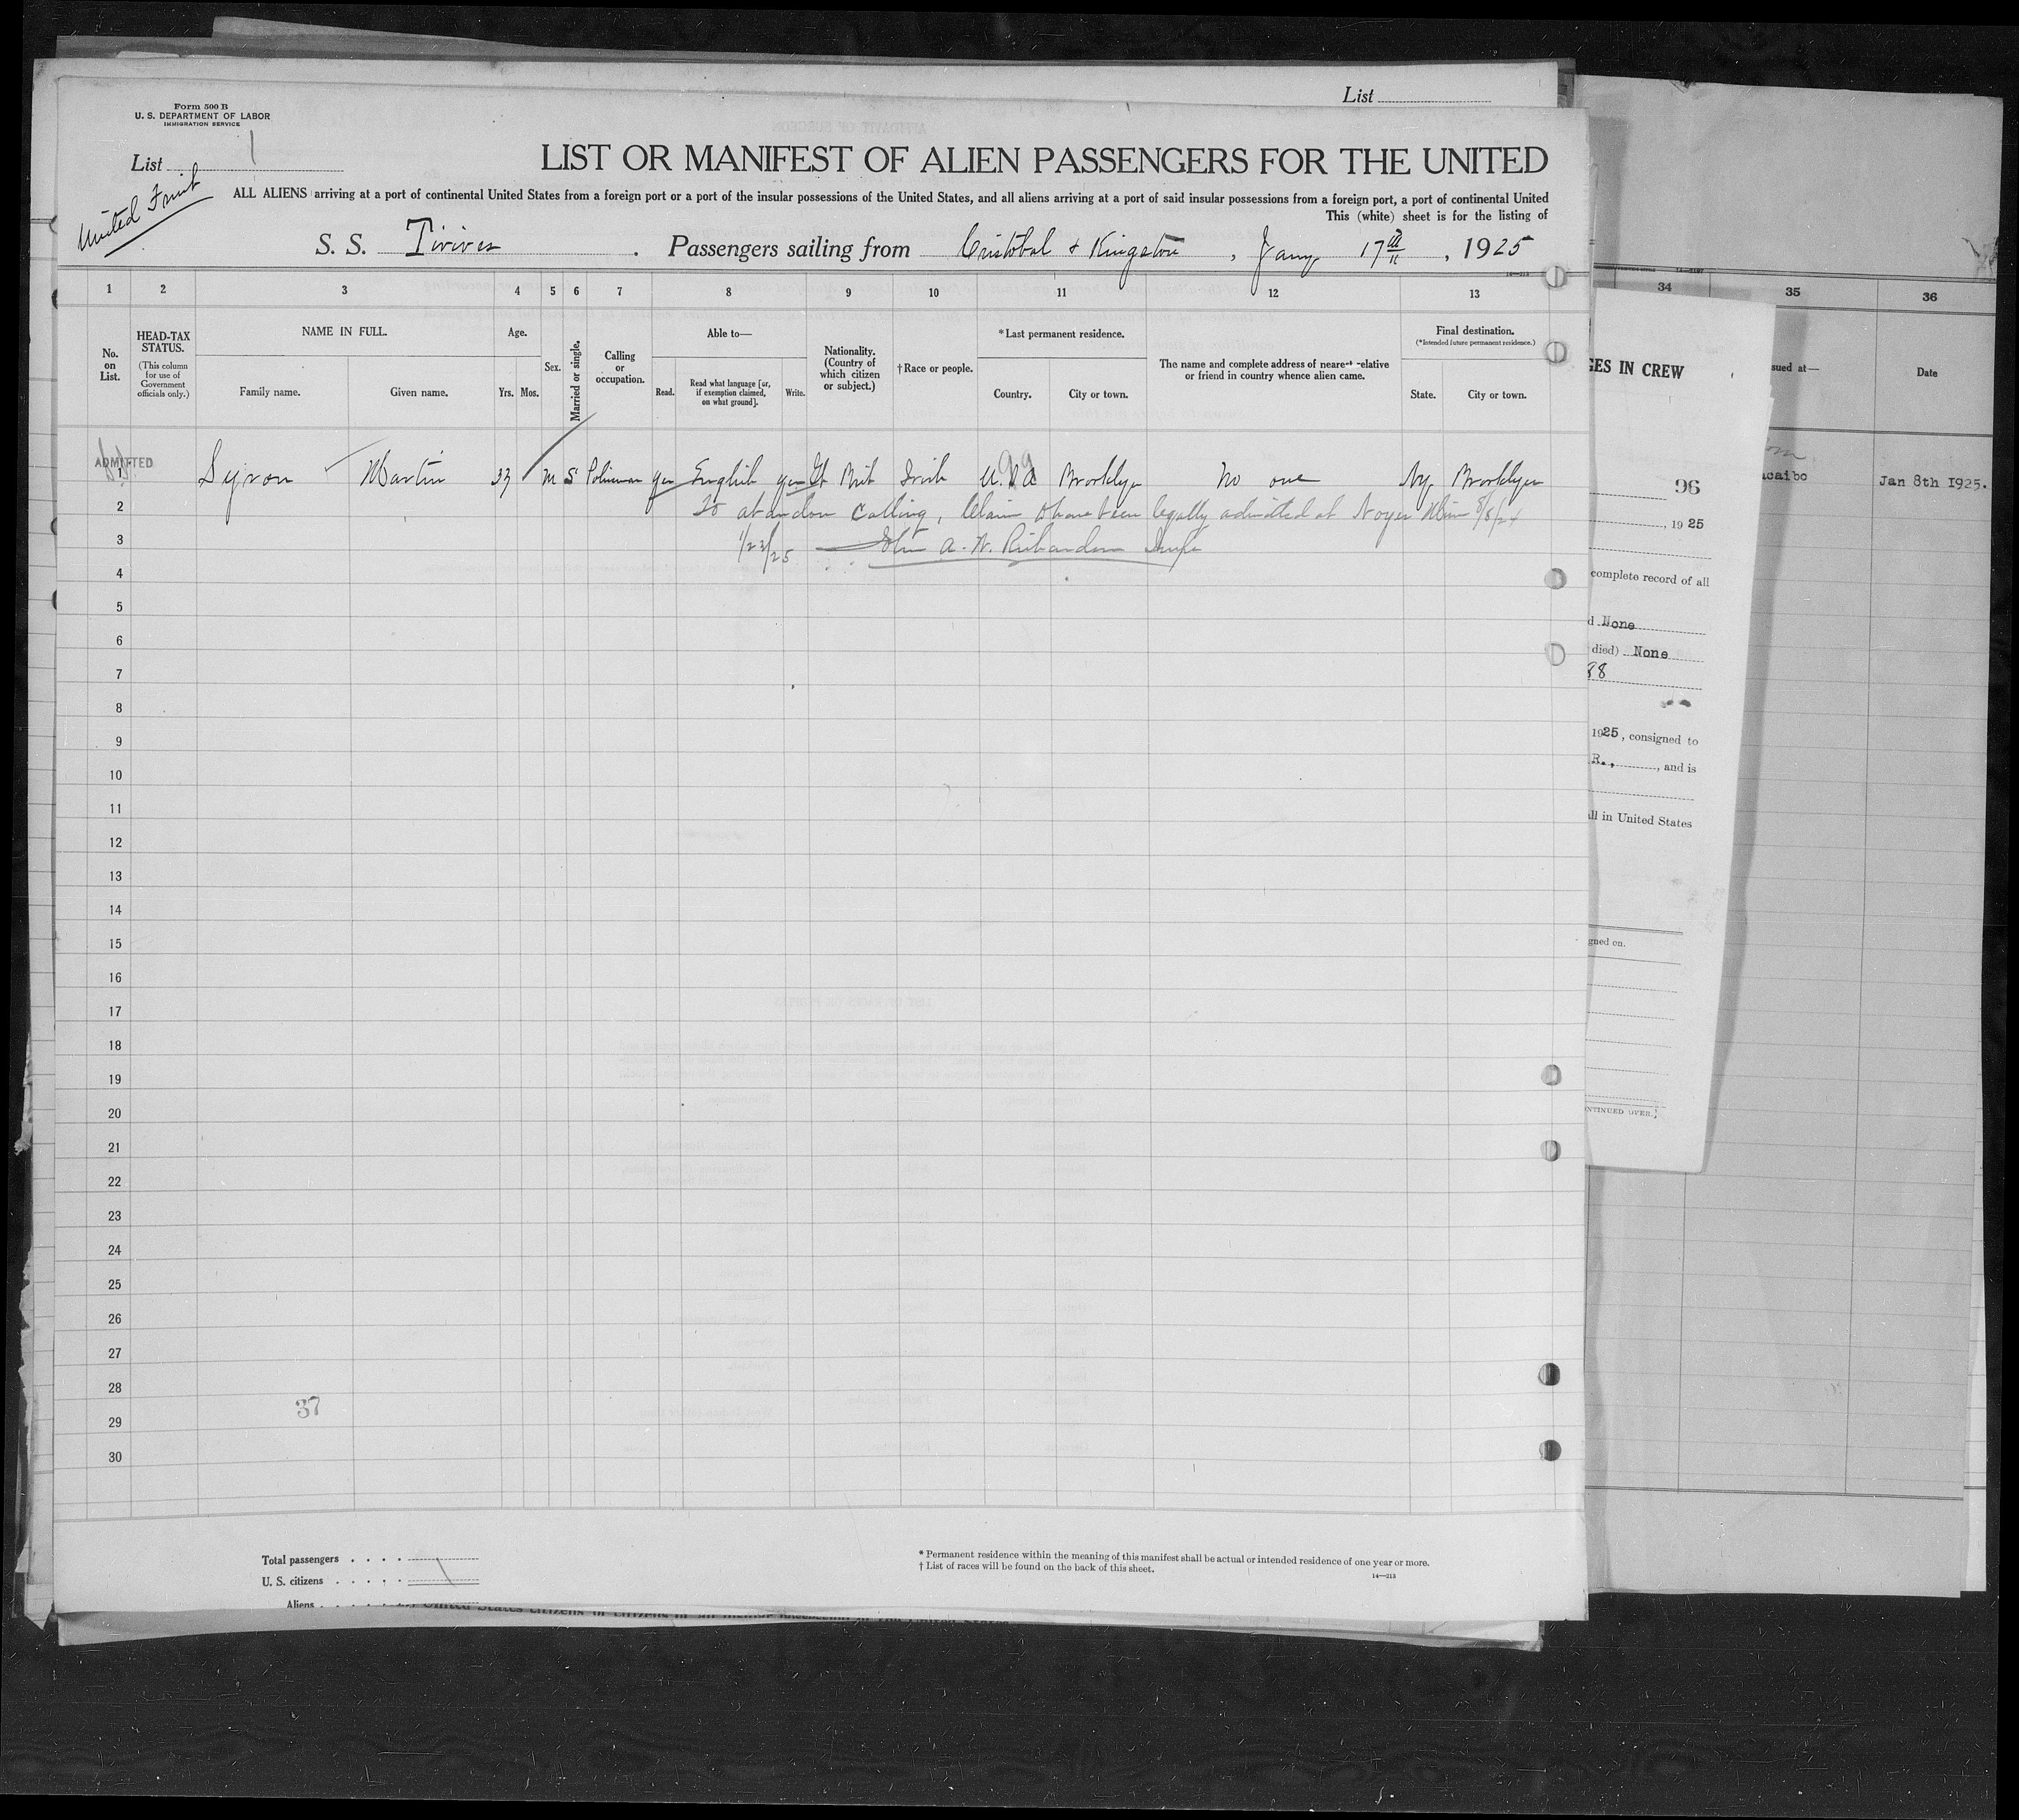 List
Form 500 B
U. S. DEPARTMENT OF LABOR
IMMIGRATION SERVICE
List 1
LIST OR MANIFEST OF ALIEN PASSENGERS FOR THE UNITED
United Fruit
ALL ALIENS arriving at a port of continental United States from a foreign port or a port of the insular possessions of the United States, and all aliens arriving at a port of said insular possessions from a foreign port, a port of continental United
This (white) sheet is for the listing of
S. S. Tivives. Passengers sailing from Cristobal & Kingston, Jany 17th, 1925
1 2 3 4 5 6 7 8 9 10 11 12 13
HEAD-TAX STATUS.
(This column for use of Government officials only.)
No. on List.
NAME IN FULL.
Family name. Given name.
Age.
Yrs. Mos.
Sex.
Married or single.
Calling or occupation.
Able to—
Read. Read what language [or, if exemption claimed, on what ground]. Write.
Nationality. (Country of which citizen or subject.)
†Race or people.
*Last permanent residence.
Country. City or town.
The name and complete address of nearest relative or friend in country whence alien came.
Final destination.
(*Intended future permanent residence.)
State. City or town.
ADMITTED
1 Syron Martin 33 M S Policeman yes English yes Gt Brit Irish U.S.A Brooklyn No one Ny Brooklyn
2 To abandon calling, Claims to have been legally admitted at Noyes Minn 8/8/24
3 1/23/25 John A. W. Richardson Insp
4
5
6
7
8
9
10
11
12
13
14
15
16
17
18
19
20
21
22
23
24
25
26
27
28
37
29
30
Total passengers
U. S. citizens
Aliens
* Permanent residence within the meaning of this manifest shall be actual or intended residence of one year or more.
† List of races will be found on the back of this sheet.
14—213
34 35 36
GES IN CREW
sued at—
Date
acaibo
Jan 8th 1925.
96
, 1925
complete record of all
d None
died) None
88
1925, consigned to
R., , and is
all in United States
gned on.
NTINUED OVER.]